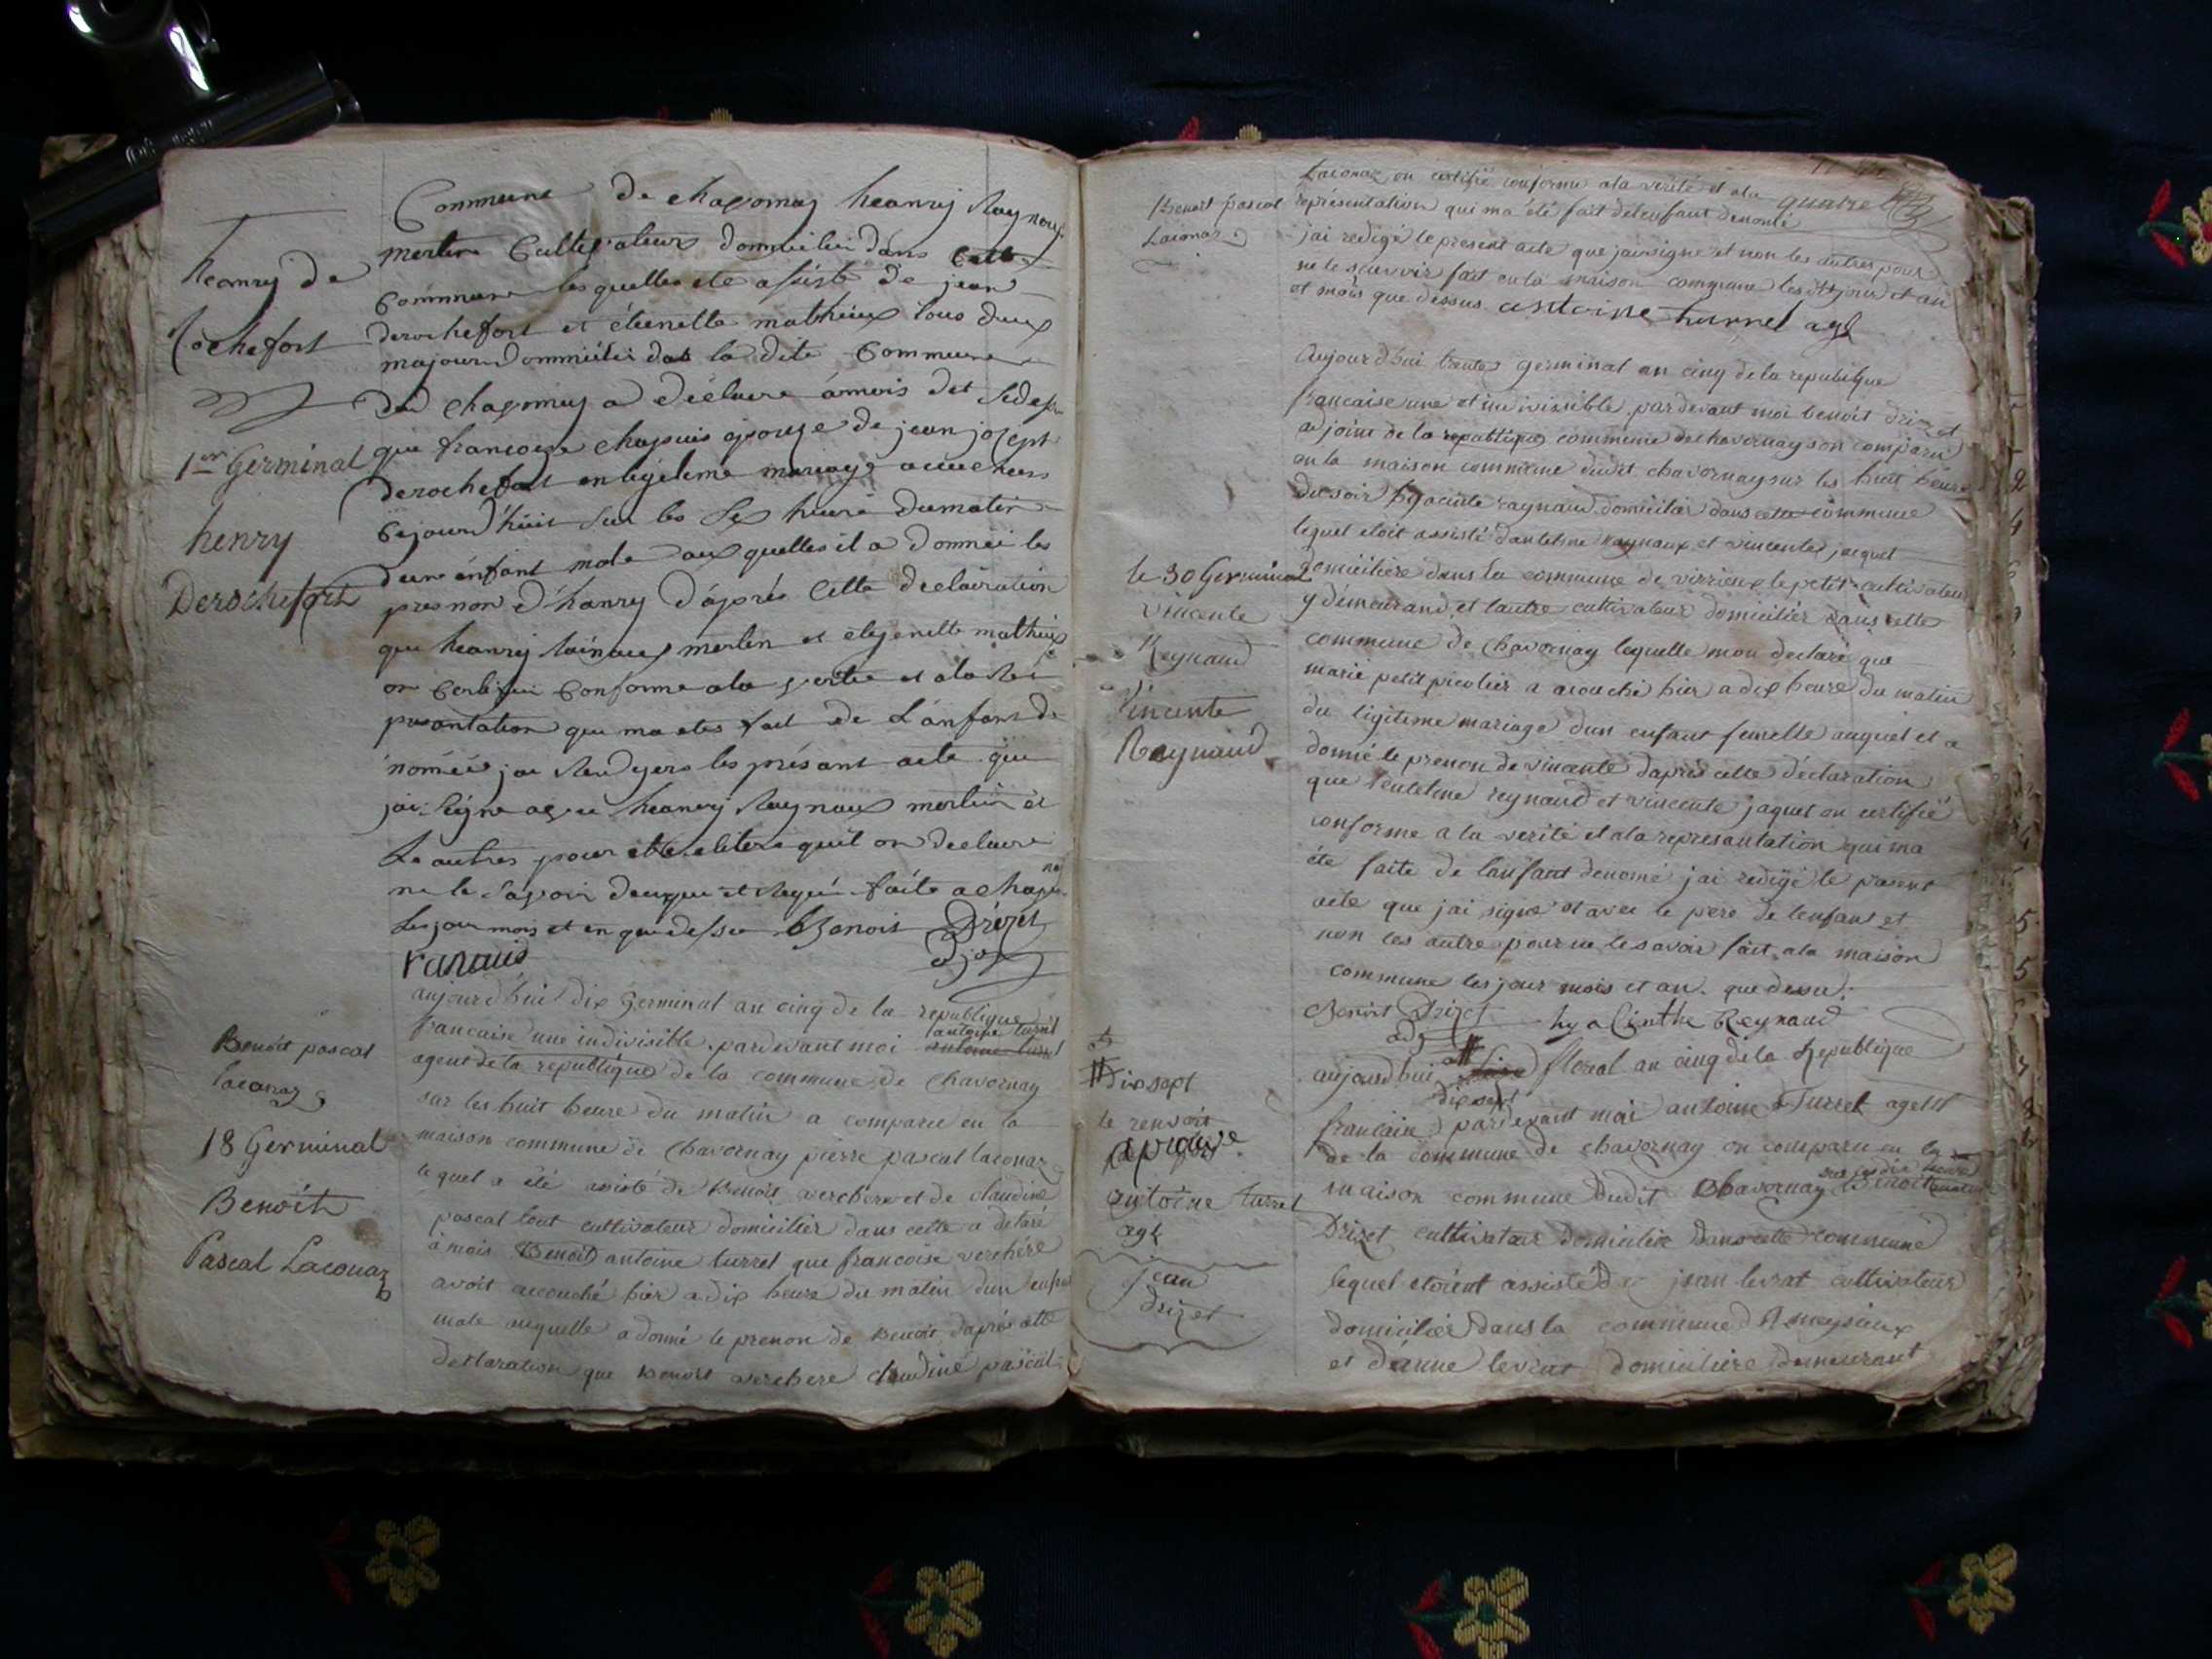 Commune de chavornay heanrij Raynous
merlin Cultivateur dommicilié dans Cette
Commune les quelles ete assiste de jean
derochefort et étienette mathieux tous deux
majour dommicilié dat la dite Commune
De chavornay a déclaré a mois
que francoise chapuis epouze de jean jozept
derochefort en legitime mariage accuchers
Cejourd'huit sur les six heure du matin
dun énfant male aux quelles il a donnéé les
pres non d'hanry d'aprés Cette declairation
que heanrij merlin et mathieux
on Certifié Conforme a la verité et a la Re
presantation que ma etes fait de L'anfant de
noméé j'ai les présant acte que
jai Signe avec heanrij Raynaux merlin et
Le autres pour etre quil on declaré
ne le Savoir fáite a chavor
nay
Les jour mois et en que dessu Benoit Drizet
adj
heanry de
Rochefort
1er Germinal
henry
Derochefort
aujourd'hui dix Germinal an cinq de la republique
francaise une indivisible pardevant moi antoine turret
antoine turret
agent de la republique de la commune de Chavornay
sur les huit heure du matin a comparu en la
maison commune de Chavornay pierre pascal laconaz
lequel a été assisté de Benoit verchere et de claudine
pascal tout cultivateur domicilier dans cette a déclaré
à mois Benoit antoine turret que francoise verchére
avoit accouché hier a dix heure du matin dun enfant
male auquelle a donné le prenon de Benoit daprés cette
déclaration que Benoit verchere claudine pascal
Benoit pascal
laconaz
18 Germinal
Benoît
Pascal Laconaz
Laconaz on certifié conforme a la verité et a la
quatre
représentation qui ma été fait de lenfant denomé
jai redigé le present acte que jai signé et non les autres pour
ne le scavoir fait en la maison commune les jour et an
et mois que dessus antoine turret agt
Benoit pascal
Laconaz
Aujourdhui trente germinal an cinq de la republique
francaise une et indivissible pardevant moi benoit drizet
adjoint de la republique commune de chavornay son comparu
en la maison commune dudit chavornay sur les huit heure
du soir hyacinte raynaud domicilier dans cette commune
lequel etoit assisté dantelme Raynaux et vincente jacquet
domicilière dans la commune de virrieux le petit cultivateur
y demeurand et lautre cultivateur domicilier dans cette
commune de Chavornay lequelle mon declaré que
marie petit picolier a acouché hier a dix heure du matin
du ligiteme mariage dun enfant femelle auquel el a
donné le prenon de vincente daprés cette déclaration
que lentelme reynaud et vincente jaquet on certifié
conforme a la verité et a la represantation qui ma
été faite de lanfant denomé jai redigé le present
acte que jai signé et avec le pere de lenfant et
non les autre pour ne le savoir fait a la maison
commune les jour mois et an que dessu
Benoit Drizet hyaCinthe Reynaud
adj
le 30 Germinal
vincente
Reynaud
Vincente
Raynaud
aujourdhui floreal an cinq de la Republique
dix sept
francaise pardevant moi antoine Turret agent
de la commune de chavornay on comparu en la
sur les dix heure
maison commune dudit Chavornay Benoit
Drizet cultivateur domicilier dans cette commune
lequel etoient assisté De jean levrat cultivateur
domicilier dans la commune
et d'anne levrat domiciliere Demeurant
Dix sept
le renvoit
aprouvé
antoine turret
agt
Jean
drizet